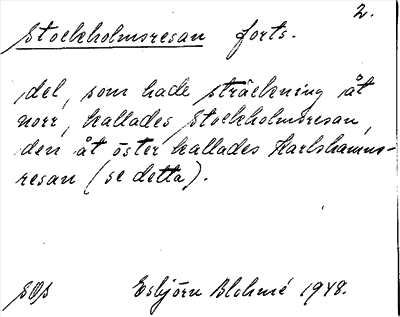 2.
Stockholmsresan forts.
del, som hade sträckning åt
norr, kallades Stockholmsresan,
den åt öster kallades Karlshamns-
resan (se detta).
SOS Esbjörn Blohmé 1948.